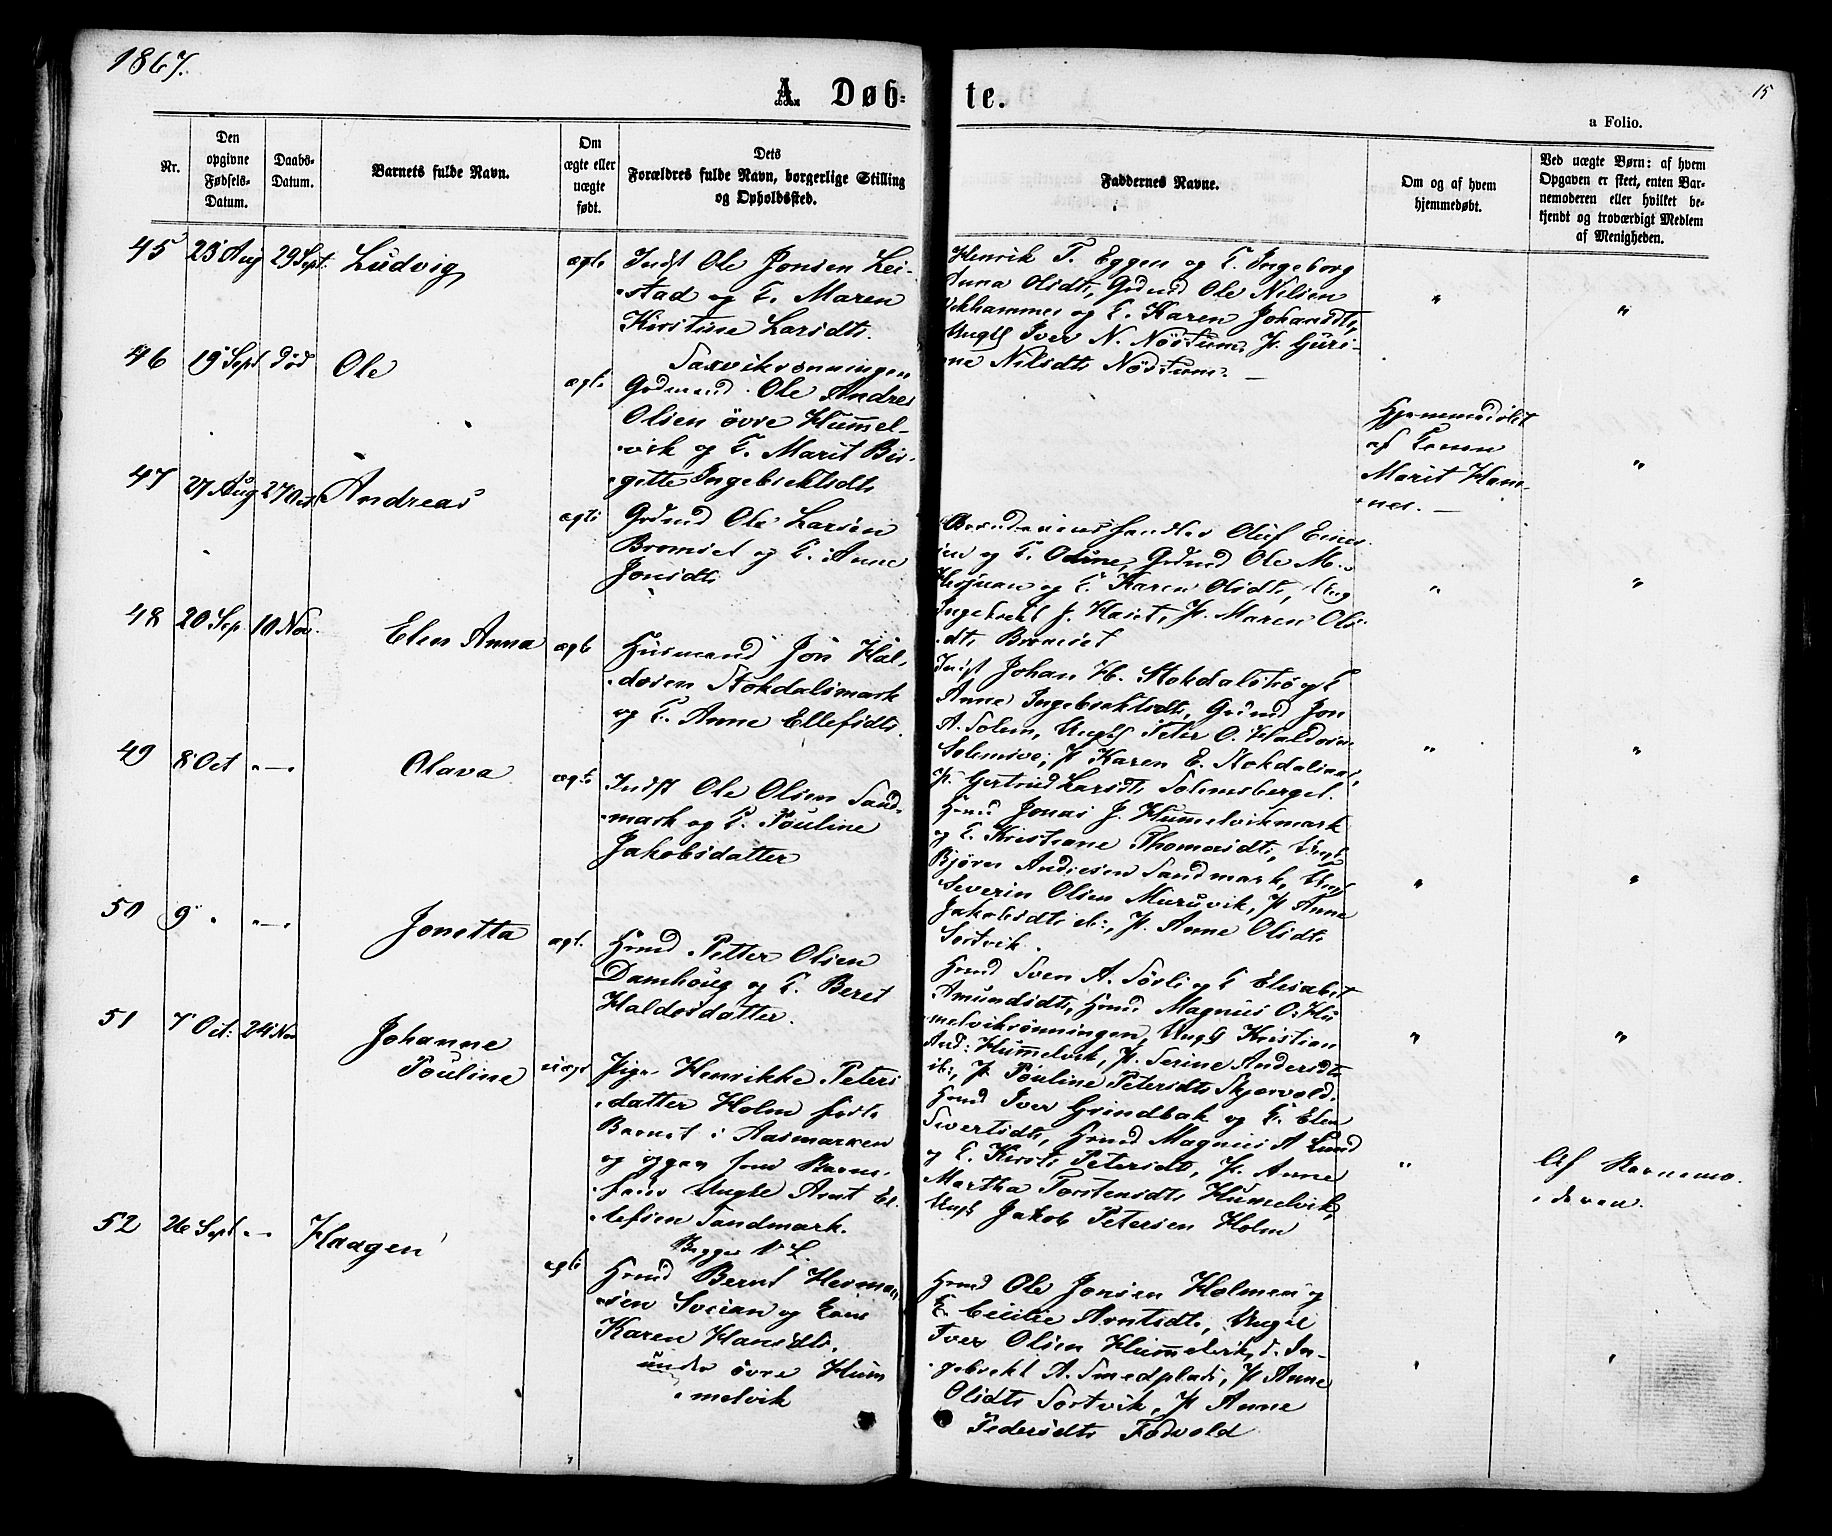 1867.
15
A. Døb-
te.
a Folio.
Nr.
Den
opgivne
Fødsels-
Datum.
Daabs-
Datum.
Barnets fulde Navn.
Om
ægte eller
uægte
født.
Dets
Forældres fulde Navn, borgerlige Stilling
og Opholdssted.
Faddernes Navne.
Om og af hvem
hjemmedøbt.
Ved uægte Børn: af hvem
Opgaven er skeet, enten Bar-
nemoderen eller hvilket be-
kjendt og troværdigt Medlem
af Menigheden.
45 25 Aug 29 Sept. Ludvig ægte
Indst Ole Jonsen Lei-
stad og E. Maren
Kirstine Larsdtr.
Saxviksønningen
Henrik T. Eggen og E. Ingeborg
Anna Olsdtr, Grdmd Ole Nilsen
Vikhammer og E. Karen Johansdtr,
Ungk Iver N. Nøstum, P. Guri-
ne Nilsdtr Nøstum. —
" "
46 19 Sept død Ole ægte
Grdmand Ole Andrea
Olsen øvre Hummel-
vik og E. Marit Bir-
gitte Ingebrektsdtr
Hjemmedøbt
af Konen
Marit Ham-
nes. —
"
47 27 Aug 27 Oct Andreas ægte
Grdmd Ole Larsen
Bromset og E. Anne
Jonsdtr
Brændevinshandler Oluf Einer-
sen og E. Odine, Grdmd Ole M.
Hesjuan og E. Karen Olsdtr, Ung
Ingebrekt J. Haset, P. Maren Ols-
dtr Bromset
" "
48 20 Sep 10 Nov. Elen Anna ægte
Husmand Jon Hal-
dosen Stokdalsmark
og E. Anne Ellefsdtr.
Indst Johan H. Stokdalstrø og E
Anne Ingebrektsdtr, Grdmd Jon
A. Solem, Ungk Peter O. Haldosen
Solemsve, P Karen E. Stokdalsaas,
P. Gertrud Larsdtr Solemsberget.
" "
49 8 Oct " — " Olava ægte
Indst Ole Olsen Sand-
mark og E. Pouline
Jakobsdatter
Hmd Jonas J. Hummelvikmark
og E. Kristiane Thomasdtr, Ungk
Bjørn Andresen Sandmark, Ung
Severin Olsen Muruvik, P Anne
Jakobsdtr ib:, P. Anne Olsdtr
Sortvik.
" "
50 9 " " — " Jonetta ægt.
Hmd Petter Olsen
Damhoug og E. Beret
Haldosdatter.
Hmd Sven A. Sørli og E Elisabet
Amundsdtr, Hmd Magnus O. Hu-
melviksønningen, Ungk Kristian
And: Hummelvik, P. Serine Andersdtr
ib:, P. Pouline Petersdtr Skjervold.
" "
51 7 Oct: 24 Nov Johanne
Pouline uægt
Pige Henrikke Peters-
datter Holm født
Barnet i Aasmarken
og opgav som Barne-
fader Ungk Arnt El-
lefsen Sandmark.
Begges 1 L.
Hmd Iver Grindbak og E. Elen
Sivertsdtr, Hmd Magnus A Lund
og E. Kirsti Petersdtr, P. Anne
Martha Torstensdtr Humelvik,
Ungk Jakob Petersen Holm
"
Af Barnemo-
deren.
52 26 Sept " — Haagen ægte
Hmd Bernt Herman-
sen Sveian og Kone
Karen Hansdtr.
under øvre Hum-
melvik
Hmd Ole Jonsen Holmen og
E. Cicilie Arntsdtr, Ungk
Iver Olsen Hummelvik, d. In-
gebrekt A. Smedplads, P Anne
Olsdtr Sortvik, P. Anne
Pedersdtr Forvold
" "